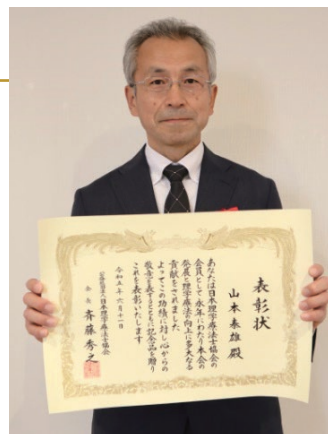 表彰状
山本泰雄殿
あなたは日本理学療法士協会の
会員として永年にわたり本会の
発展と理学療法の向上に多大なる
貢献をされました
よってこの功績に対し心からの
敬意を表すとともに記念品を贈り
これを表彰いたします
令和五年六月十一日
公益社団法人日本理学療法士協会
会長 斉藤秀之